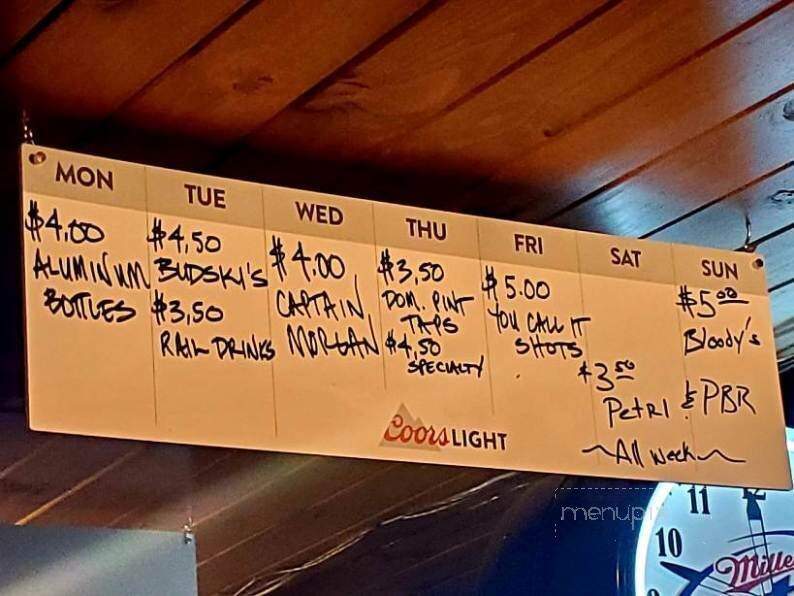 MON
$4.00
ALUMINUM
BOTTLES
TUE
$4.50
BUDSKI'S
$3.50
RAIL DRINKS
WED
$4.00
CAPTAIN
MORGAN
THU
$3.50
DOM. PINT
TAPS
$4.50
SPECIALTY
FRI
$5.00
YOU CALL IT
SHOTS
SAT
SUN
$5.00
Bloody's
$3.50
Petri & PBR
~All Week~
Coors LIGHT
menupi
11
12
10
Mille